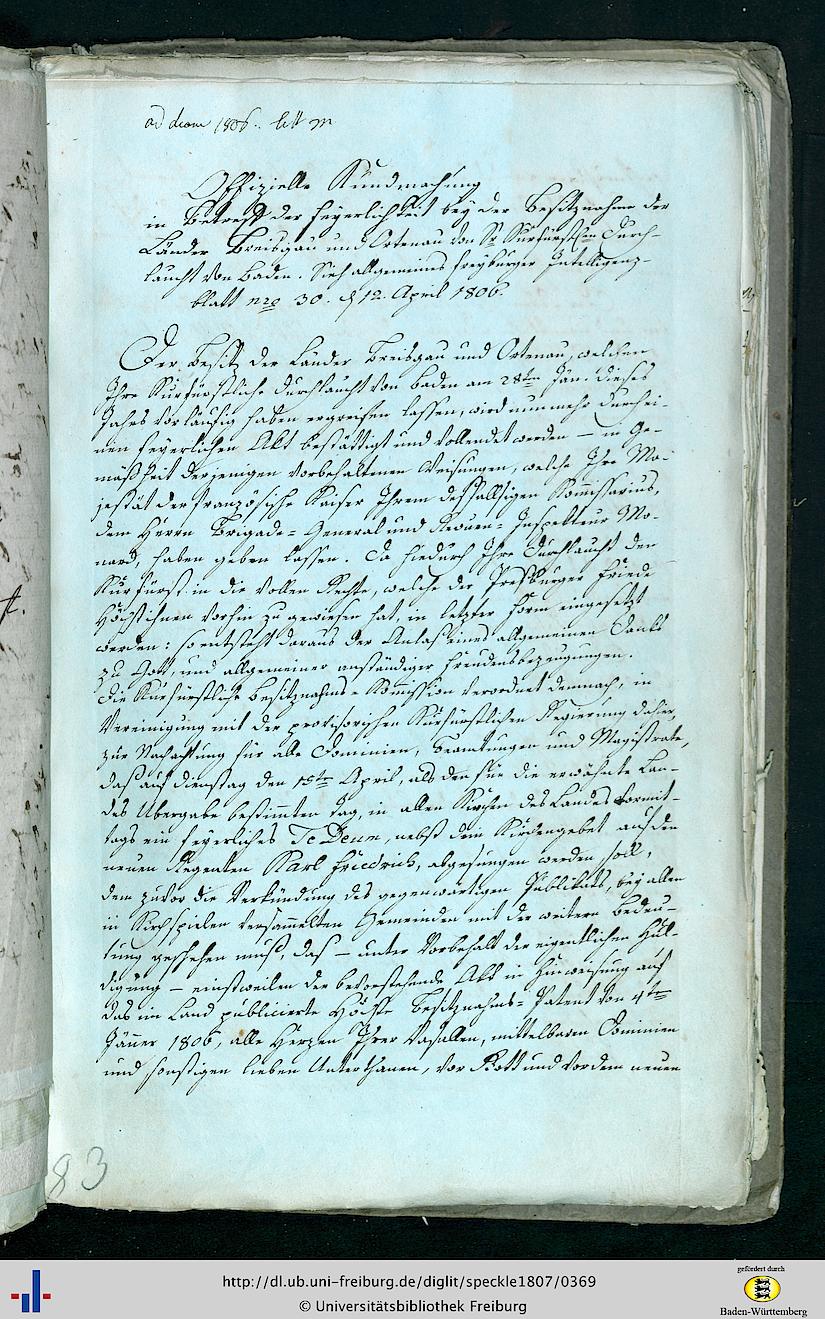 ad diem 1806. litt M
Offizielle Kundmachung
in Betreff der Feyerlichkeit bey der Besitznahme der
Länder Breisgau und Ortenau von Sr Kurfürstlen Durch-
laucht von Baden. Sieh allgemeines freyburger Intelligenz-
blatt nro 30. 12. April 1806.
Der Besitz der Länder Breisgau und Ortenau, welchen
Ihre Kurfürstliche Durchlaucht von Baden am 28ten Jän. dieses
Jahrs vorläufig haben ergreifen lassen, wird nunmehr durch ei-
nen feyerlichen Akt bestättigt und vollendet werden – in Ge-
mäßheit derjenigen vorbehaltenen Weisungen, welche Ihre Ma-
jestät der französische Kaiser Ihrem desfallsigen Kommissarius,
dem Herrn Brigade-General und Revuen-Inspekteur Mo-
nard, haben geben lassen. Da hiedurch Ihre Durchlaucht der
Kurfürst in die vollen Rechte, welche der Preßburger Friede
Höchstihnen vorhin zu gewiesen hat, in letzter Form eingesetzt
werden: so entsteht daraus der Anlaß eines allgemeinen Danks
zu Gott, und allgemeiner anständiger Freudensbezeugungen.
Die Kurfürstliche Besitznahms-Komission verordnet demnach, in
Vereinigung mit der provisorischen Kurfürstlichen Regierung dahier,
zur Nachachtung für alle Dominien, Beamtungen und Magistrate,
daß auf Dienstag den 15ten April, als den für die erwähnte Lan-
des Übergabe bestimmten Tag, in allen Kirchen des Landes Vormit-
tags ein feyerliches Te Deum, nebst dem Kirchengebet auf den
neuen Regenten Karl Friedrich, abgesungen werden soll,
dem zuvor die Verkündung des gegenwärtigen Publikats, bey allen
in Kirchspielen versammelten Gemeinden mit der weitern Bedeu-
tung geschehen muß, das – unter Vorbehalt der eigentlichen Hul-
digung – einstweilen der bevorstehende Akt in Hinweisung auf
das im Land publicierte Höchste Besitznahms-Patent von 4ten
Jänner 1806, alle Herzen Ihrer Vasallen, mittelbaren Dominien
und sonstigen lieben Unterthanen, vor Gott und vor dem neuen
83
http://dl.ub.uni-freiburg.de/diglit/speckle1807/0369
© Universitätsbibliothek Freiburg
gefördert durch
Baden-Württemberg